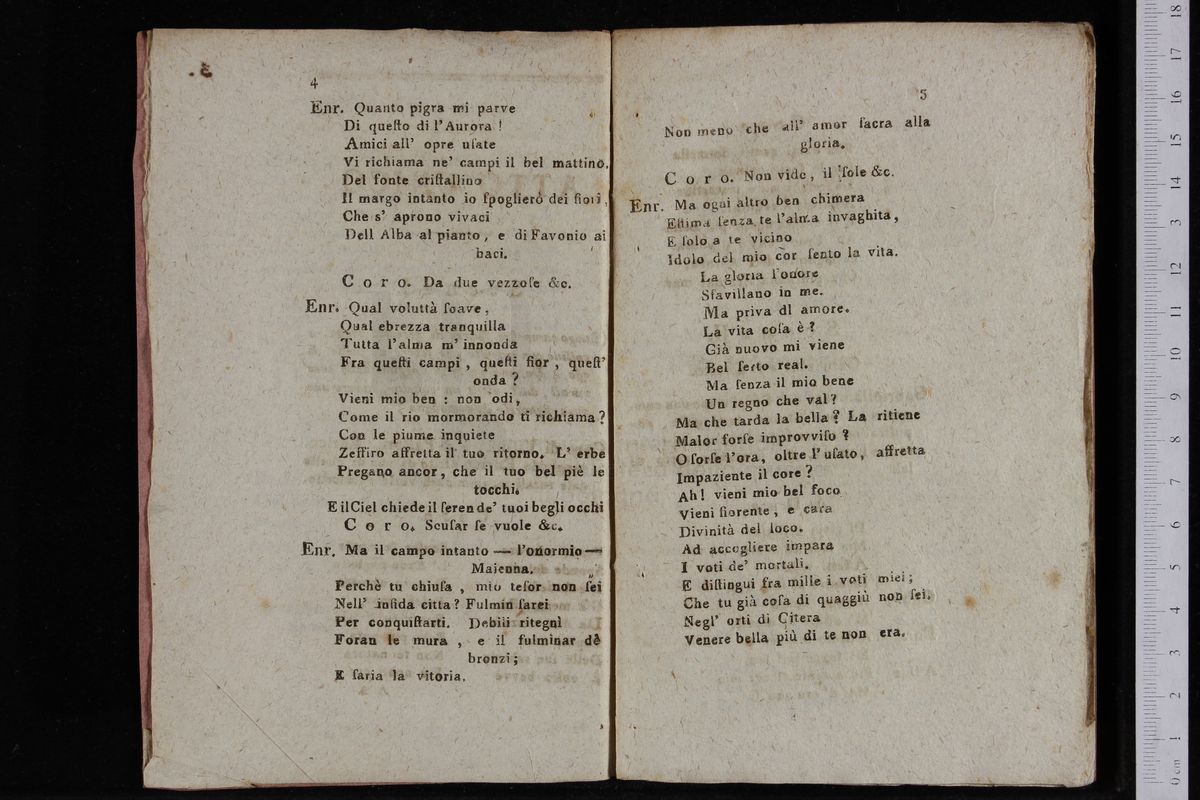 4
Enr. Quanto pigra mi parve
Di queſto di l'Aurora !
Amici all' opre uſate
Vi richiama ne' campi il bel mattino.
Del fonte criſtallino
Il margo intanto io ſpoglierò dei fiori,
Che s' aprono vivaci
Dell Alba al pianto, e di Favonio ai
baci.
C o r o. Da due vezzoſe &c.
Enr. Qual voluttà ſoave,
Qual ebrezza tranquilla
Tutta l'alma m' innonda
Fra queſti campi, queſti fior, queſt'
onda ?
Vieni mio ben : non odi,
Come il rio mormorando ti richiama?
Con le piume inquiete
Zeffiro affretta il tuo ritorno. L' erbe
Pregano ancor, che il tuo bel piè le
tocchi.
E il Ciel chiede il ſeren de' tuoi begli occhi
C o r o. Scuſar ſe vuole &c.
Enr. Ma il campo intanto — l'onor mio —
Maienna.
Perchè tu chiuſa, mio teſor non ſei
Nell' infida citta? Fulmin ſarei
Per conquiſtarti. Debili ritegni
Foran le mura, e il fulminar de
bronzi;
E ſaria la vitoria.
5
Non meno che all' amor ſacra alla
gloria.
C o r o. Non vide, il ſole &c.
Enr. Ma ogni altro ben chimera
Eſtima ſenza te l'alma invaghita,
E ſolo a te vicino
Idolo del mio cor ſento la vita.
La gloria l'onore
Sfavillano in me.
Ma priva di amore.
La vita coſa è?
Già nuovo mi viene
Bel ſerto real.
Ma ſenza il mio bene
Un regno che val?
Ma che tarda la bella? La ritiene
Malor forſe improvviſo?
O forſe l'ora, oltre l' uſato, affretta
Impaziente il core?
Ah! vieni mio bel foco
Vieni fiorente, e cara
Divinità del loco.
Ad accogliere impara
I voti de' mortali.
E diſtingui fra mille i voti miei;
Che tu già coſa di quaggiù non ſei.
Negl' orti di Citera
Venere bella più di te non era.
0 cm 1 2 3 4 5 6 7 8 9 10 11 12 13 14 15 16 17 18